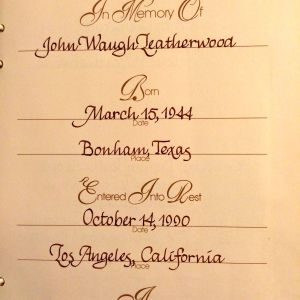 In Memory Of
John Waugh Leatherwood
Born
March 15, 1944
Date
Bonham, Texas
Place
Entered Into Rest
October 14, 1990
Date
Los Angeles, California
Place